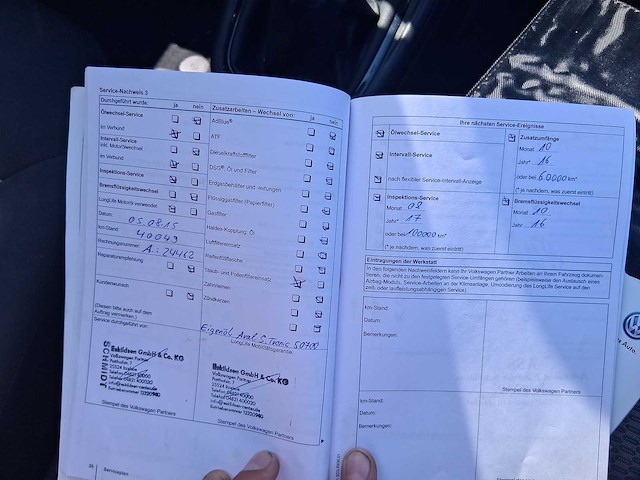 Service-Nachweis 3
Durchgeführt wurde: ja nein
Ölwechsel-Service
im Verbund
Intervall-Service
inkl. Motorölwechsel
im Verbund
Inspektions-Service
Bremsflüssigkeitswechsel
LongLife Motoröl verwendet
Datum: 05.08.15
km-Stand: 40049
Rechnungsnummer: A.: 24462
Reparaturempfehlung ja nein
Kundenwunsch ja nein
(Diesen bitte auch auf dem
Auftrag vermerken.)
Service durchgeführt von:
SCHMIDT
GmbH & Co. KG
Volkswagen Partner
Stempel des Volkswagen Partners
Zusatzarbeiten – Wechsel von: ja nein
AdBlue®
ATF
Dieselkraftstofffilter
DSG®: Öl und Filter
Gasfilter
Haldex-Kupplung: Öl
Luftfiltereinsatz
Reifenfüllflasche
Staub- und Pollenfiltereinsatz
Zahnriemen
Zündkerzen
LongLife Mobilitätsgarantie
GmbH & Co. KG
Volkswagen Partner
Stempel des Volkswagen Partners
Serviceplan
Ihre nächsten Service-Ereignisse
Ölwechsel-Service
Intervall-Service
nach flexibler Service-Intervall-Anzeige
Zusatzumfänge
Monat 10
Jahr* 16
oder bei 60000 km*
(* je nachdem, was zuerst eintritt)
Inspektions-Service
Monat 08
Jahr* 17
oder bei 100000 km*
(* je nachdem, was zuerst eintritt)
Bremsflüssigkeitswechsel
Monat 10
Jahr 16
Eintragungen der Werkstatt
In den folgenden Nachweisfeldern kann Ihr Volkswagen Partner Arbeiten an Ihrem Fahrzeug dokumen-
tieren, die nicht zu den festgelegten Service-Umfängen gehören (beispielsweise den Austausch eines
Airbag-Moduls, Service-Arbeiten an der Klimaanlage, Umcodierung des LongLife Service auf den
zeit- oder laufleistungsabhängigen Service).
km-Stand:
Datum:
Bemerkungen:
Stempel des Volkswagen Partners
km-Stand:
Datum:
Bemerkungen:
Stempel des Volkswagen Partners
Auto.